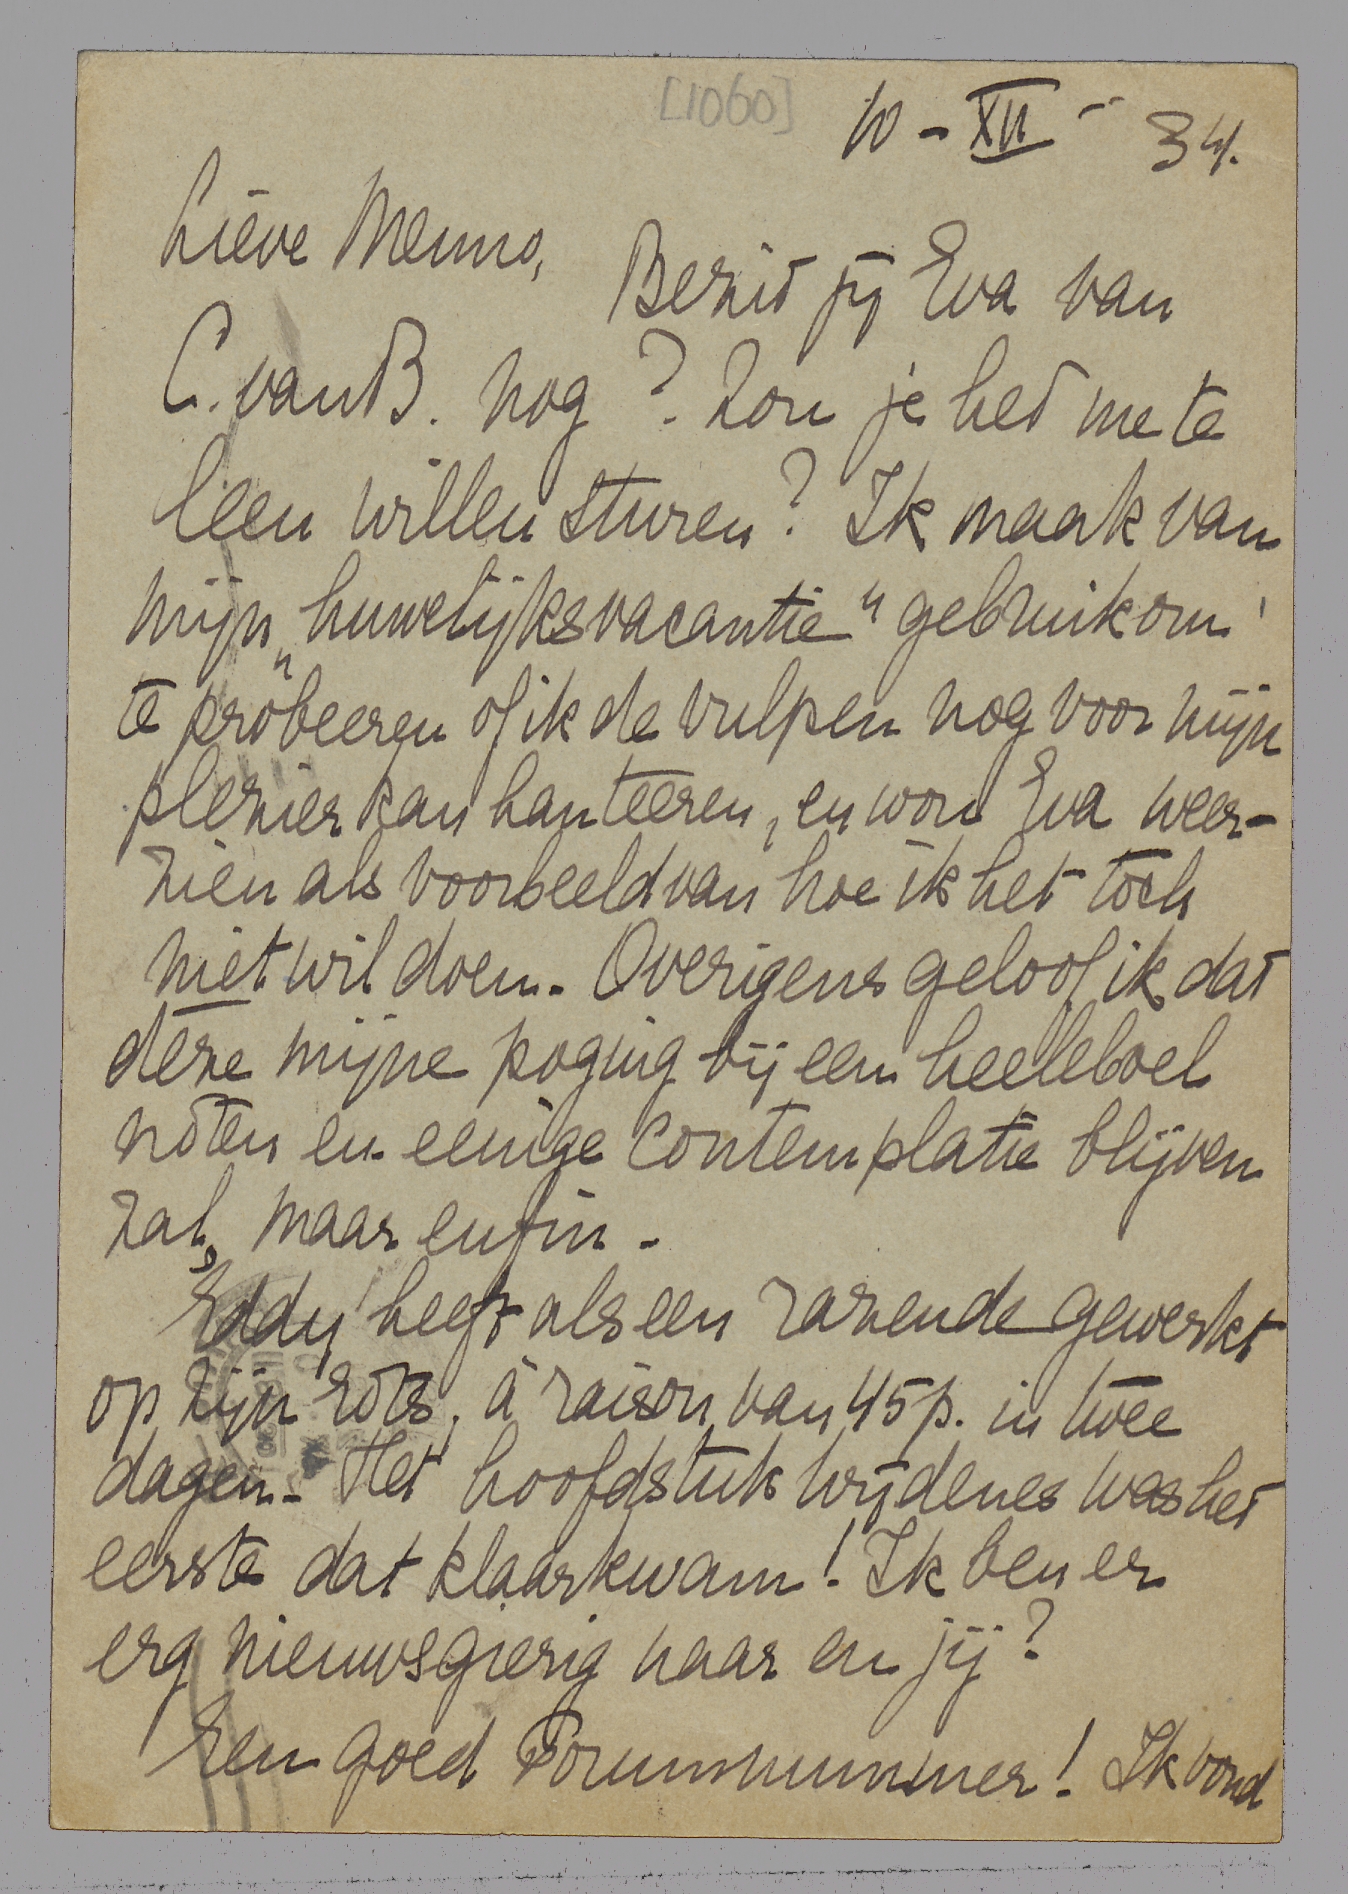 [1060]
10 - XII - 34.
Lieve Menno,
Bezit jij Eva van
C. van B. nog? Zou je het me te
leen willen sturen? Ik maak van
mijn „huwelijksvacantie" gebruik om
te probeeren of ik de vulpen nog voor mijn
plezier kan hanteeren, en wou Eva weer-
zien als voorbeeld van hoe ik het toch
niet wil doen. Overigens geloof ik dat
deze mijne poging bij een heeleboel
noten en eenige contemplatie blijven
zal, maar enfin.
Eddy heeft als een razende gewerkt
op zijn rots, à raison van 45 p. in twee
dagen. Het hoofdstuk Wijdenes was het
eerste dat klaarkwam! Ik ben er
erg nieuwsgierig naar en jij?
Een goed Forumnummer! Ik vond